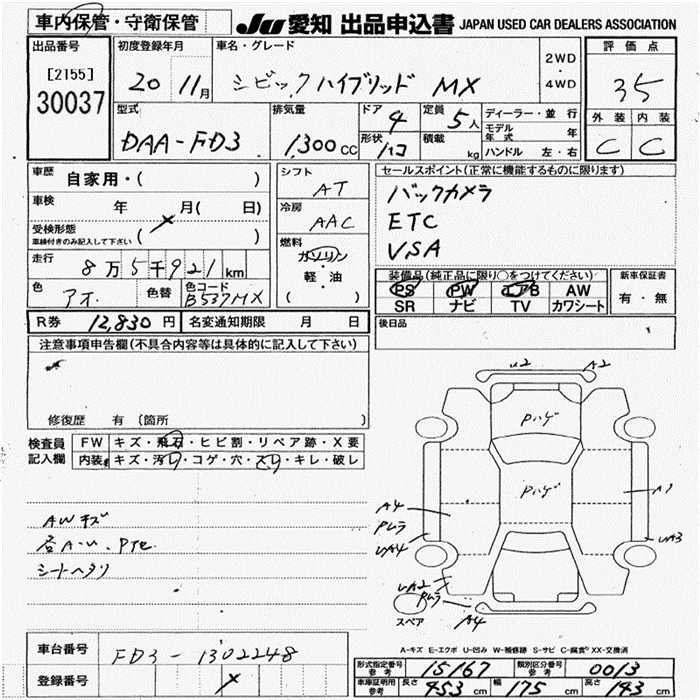 車内保管・守衛保管
JU 愛知 出品申込書 JAPAN USED CAR DEALERS ASSOCIATION
出品番号
[2155]
30037
初度登録年月
20 11月
車名・グレード
シビックハイブリッド MX
2WD
・
4WD
評価点
35
外装 内装
C C
型式
DAA-FD3
排気量
1,300cc
ドア 4
形状 ハコ
定員 5人
積載 kg
ディーラー・並行
モデル年式 年
ハンドル 左・右
車歴
自家用・( )
車検 年 月( 日)
受検形態
車検付きのみ記入して下さい ( )
走行
8万5千921km
色
アオ
色替
色コード
B537MX
シフト
AT
冷房
AAC
燃料
ガソリン
・
軽・油
( )
セールスポイント(正常に機能するものに限ります)
バックカメラ
ETC
VSA
装備品(純正品に限り○をつけてください)
PS PW エアB AW
SR ナビ TV カワシート
新車保証書
有・無
R券 12,830円 名変通知期限 月 日
後日品
注意事項申告欄(不具合内容等は具体的に記入して下さい)
修復歴 有 (箇所 )
検査員
記入欄
FW キズ・飛石・ヒビ割・リペア跡・X要
内装 キズ・汚れ・コゲ・穴・スレ・キレ・破レ
AWキズ
各A-U、Pte
シートヘタリ
U2 A2
Pハゲ
Pハゲ
A4
Pムラ
UA4
A1
UA3
UA2
Pムラ
A4
スペア
A-キズ E-エクボ U-凹み W-補修跡 S-サビ C-腐食 XX-交換済
車台番号
FD3-1302248
登録番号
形式指定番号
参考
15167
類別区分番号
参考
0013
車庫証明用
参考
長さ 453cm 幅 175cm 高さ 143cm